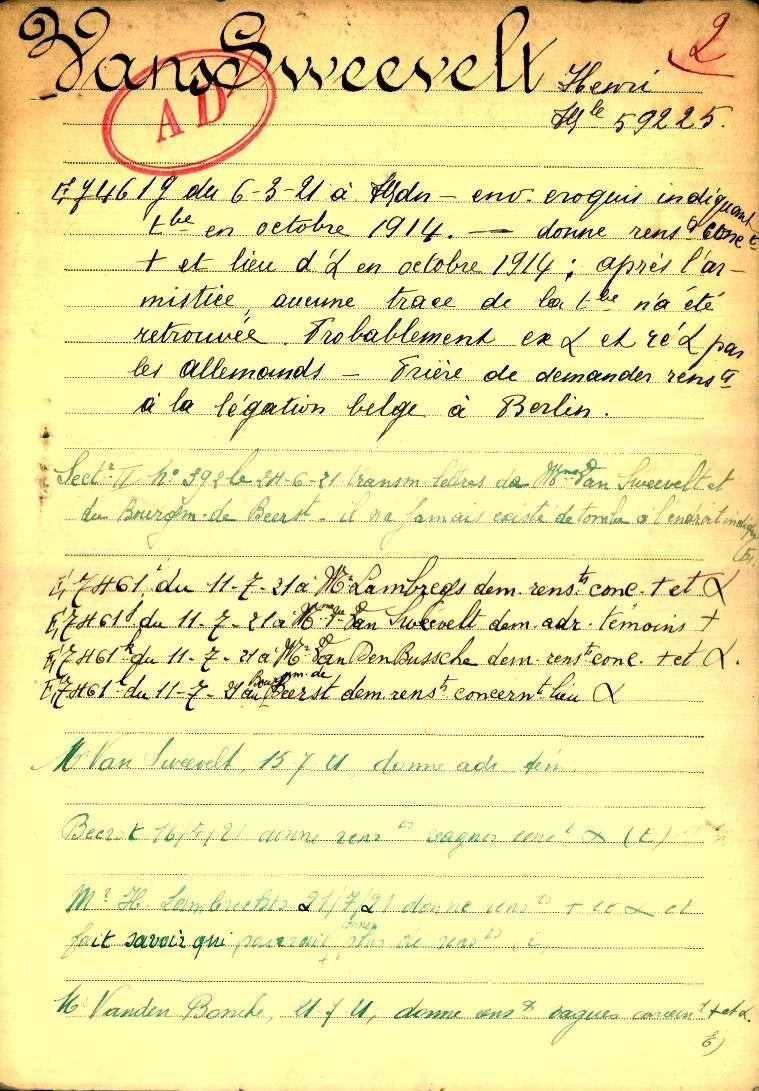 Van Sweevelt Henri
2
AD
Mle 59225.
E,74619 du 6-3-21 à Mdn – env. croquis indiquant
tbe en octobre 1914. — donne rensts conc t
+ et lieu d'α en octobre 1914 ; après l'ar-
mistice, aucune trace de la tbe n'a été
retrouvée. Probablement ex α et ré α par
les allemands – Prière de demander rensts
à la légation belge à Berlin.
Sect. II No 392 le 24-6-21 transm lettres de Mme Van Sweevelt et
du Bourgm. de Beerst – il n'a jamais existé de tombe à l'endroit indiqué
E,7461 du 11-7-21 à Mr Lambregs dem. rensts conc. + et α
E,7461 du 11-7-21 à Mme Van Sweevelt dem. adr. témoins +
E,7461k du 11-7-21 à Mr Van Den Bussche dem. rensts conc. + et α.
E,7461l du 11-7-21 au Bourgm. de Beerst dem. rensts concernt lieu α
Mr Van Sweevelt, 15 7 21, donne adr tém.
Beerst 16/7/21 donne rensts vagues conct α (E)
Mr H. Lambrechts 21/7/21 donne rensts + et α et
fait savoir qui pourrait donner plus de rensts
Mr Vanden Bossche, 21 7 21, donne rensts vagues concernt + et α.
E)